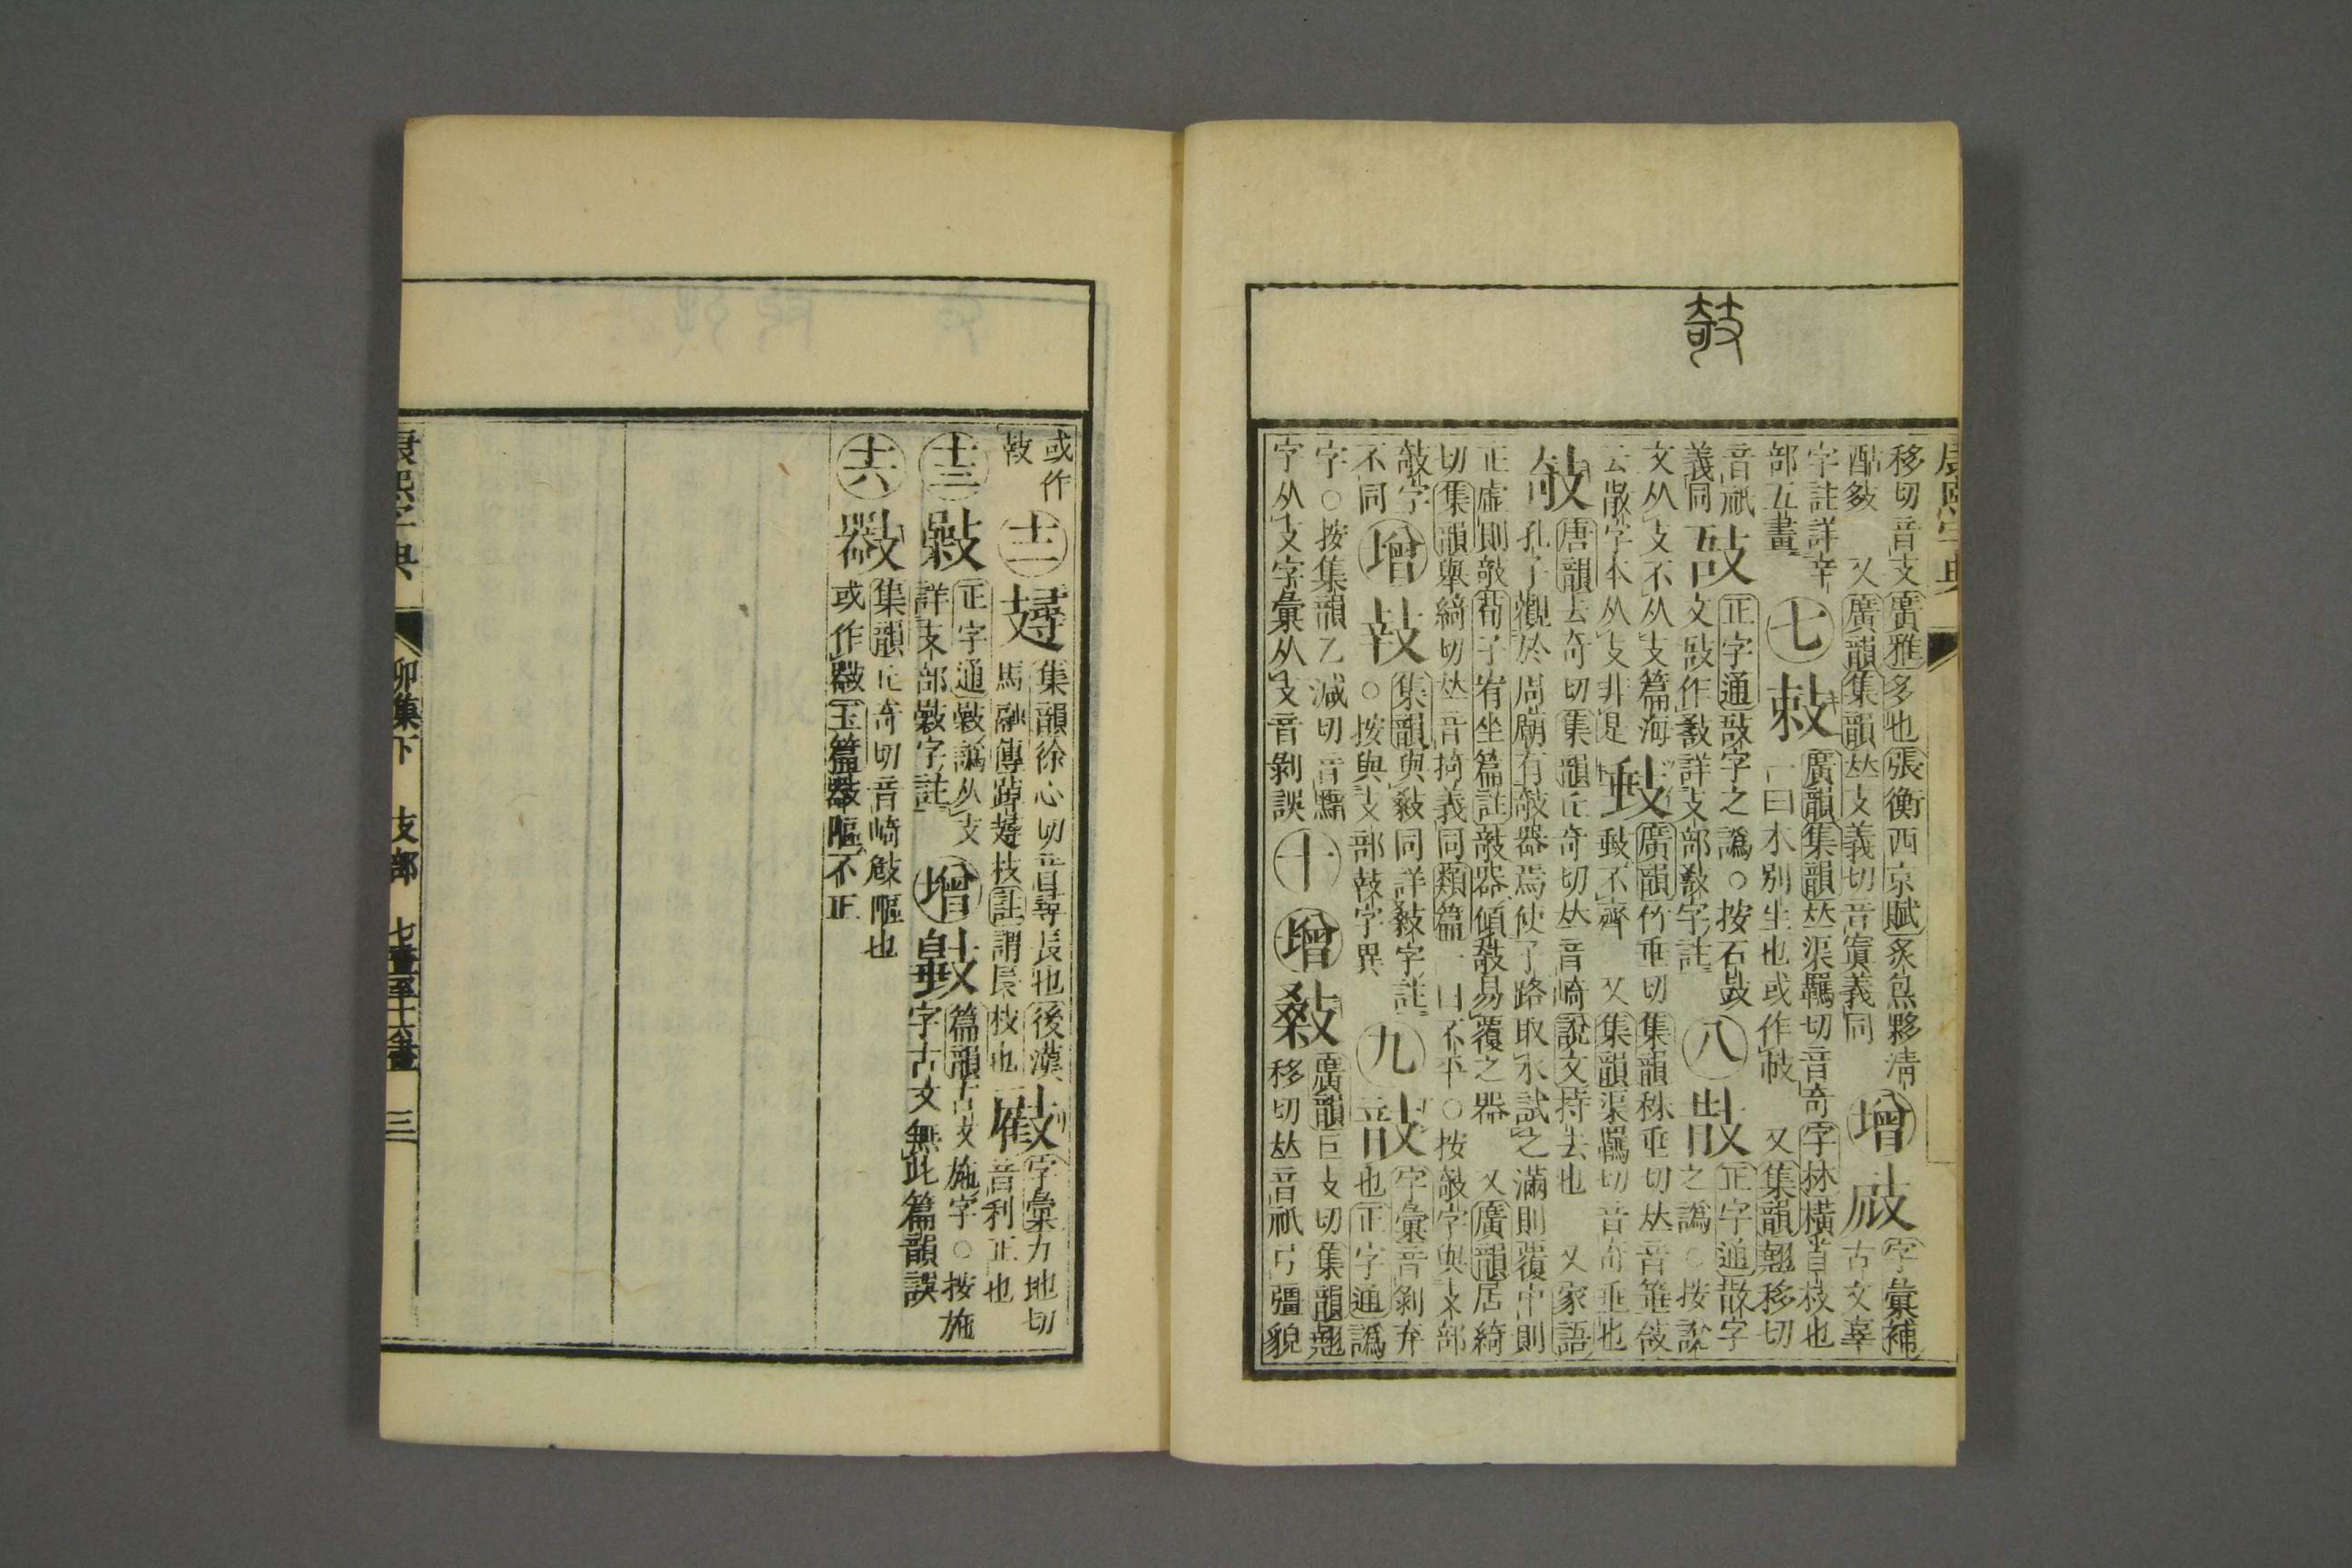 攲
康熙字典
移切音支廣雅多也張衡西京賦炙炰夥清
酤㩼 又廣韻集韻𠀤支義切音寘義同
增
字彙補
古文辜
字註詳辛
部五畫
七
廣韻集韻𠀤渠羈切音奇字林橫首枝也
一曰木別生也或作 又集韻翹移切
音祇
義同
敼
正字通敼字之譌○按石鼓
文敼作詳攴部字註
八
㪚
正字通㪚字
之譌○按說
文从攴不从支篇海
云㪚字本从攴非是
廣韻竹垂切集韻株垂切𠀤音箠
不齊 又集韻渠羈切音奇垂也
攲
唐韻去奇切集韻丘奇切𠀤音崎說文持去也 又家語
孔子觀於周廟有攲器焉使子路取水試之滿則覆中則
正虛則攲荀子宥坐篇註攲器傾攲易覆之器 又廣韻居綺
切集韻舉綺切𠀤音掎義同類篇一曰不平○按攲字與攴部
敧字
不同
增
集韻與同詳字註
○按與攴部字異
九
字彙音剝弃
也正字通譌
字○按集韻乙減切音黯
字从攴字彙从支音剝誤
十
增
廣韻巨支切集韻翹
移切𠀤音祇弓彊貌
或作
攲
十二
集韻徐心切音尋長也後漢
馬融傳踔枝註謂長枝也
字彙力地切
音利正也
十三
正字通譌从支
詳攴部字註
增
篇韻古文施字○按施
字古文無此篇韻誤
十六
集韻丘奇切音崎䧢也
或作玉篇䧢不正
康熙字典 卯集下 支部 七畫至十六畫 三